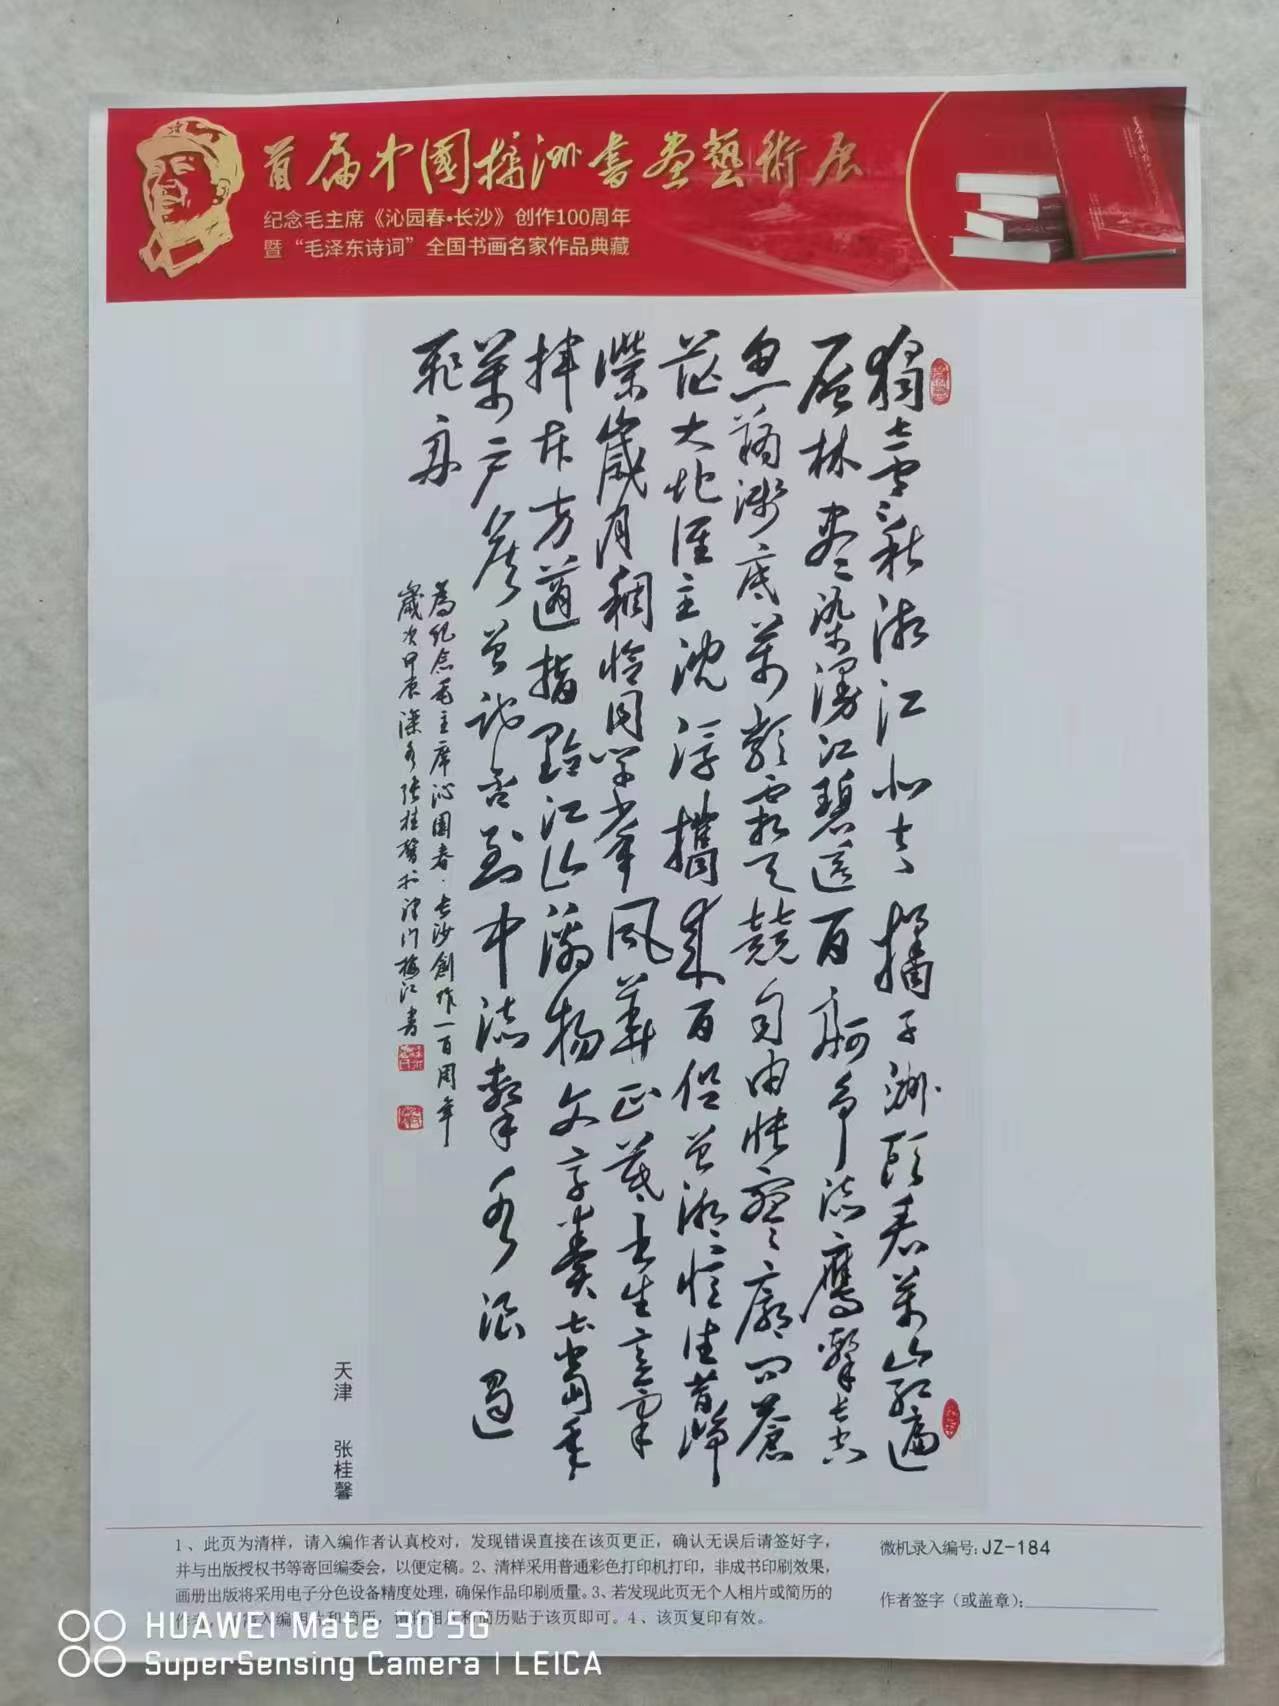 首届中國橘洲書畫藝術展
纪念毛主席《沁园春•长沙》创作100周年
暨“毛泽东诗词”全国书画名家作品典藏
獨立寒秋湘江北去橘子洲頭看萬山紅遍
层林尽染漫江碧透百舸争流鷹擊長空
魚翔浅底萬類霜天競自由怅寥廓问蒼
茫大地谁主沈浮攜来百侣曾游忆往昔峥
嵘歲月稠恰同学少年風華正茂书生意氣
挥斥方遒指點江山激扬文字糞土當年
萬户侯曾记否到中流擊水浪遏
飛舟
為纪念毛主席沁園春·長沙創作一百周年
歲次甲辰深冬張桂馨于津门梅江書
天津 张桂馨
1、此页为清样，请入编作者认真校对，发现错误直接在该页更正，确认无误后请签好字，
并与出版授权书等寄回编委会，以便定稿。2、清样采用普通彩色打印机打印，非成书印刷效果，
画册出版将采用电子分色设备精度处理，确保作品印刷质量。3、若发现此页无个人相片或简历的
作 入编 片和简历， 相 历贴于该页即可。4、该页复印有效。
微机录入编号：JZ-184
作者签字（或盖章）：
HUAWEI Mate 30 5G
SuperSensing Camera | LEICA